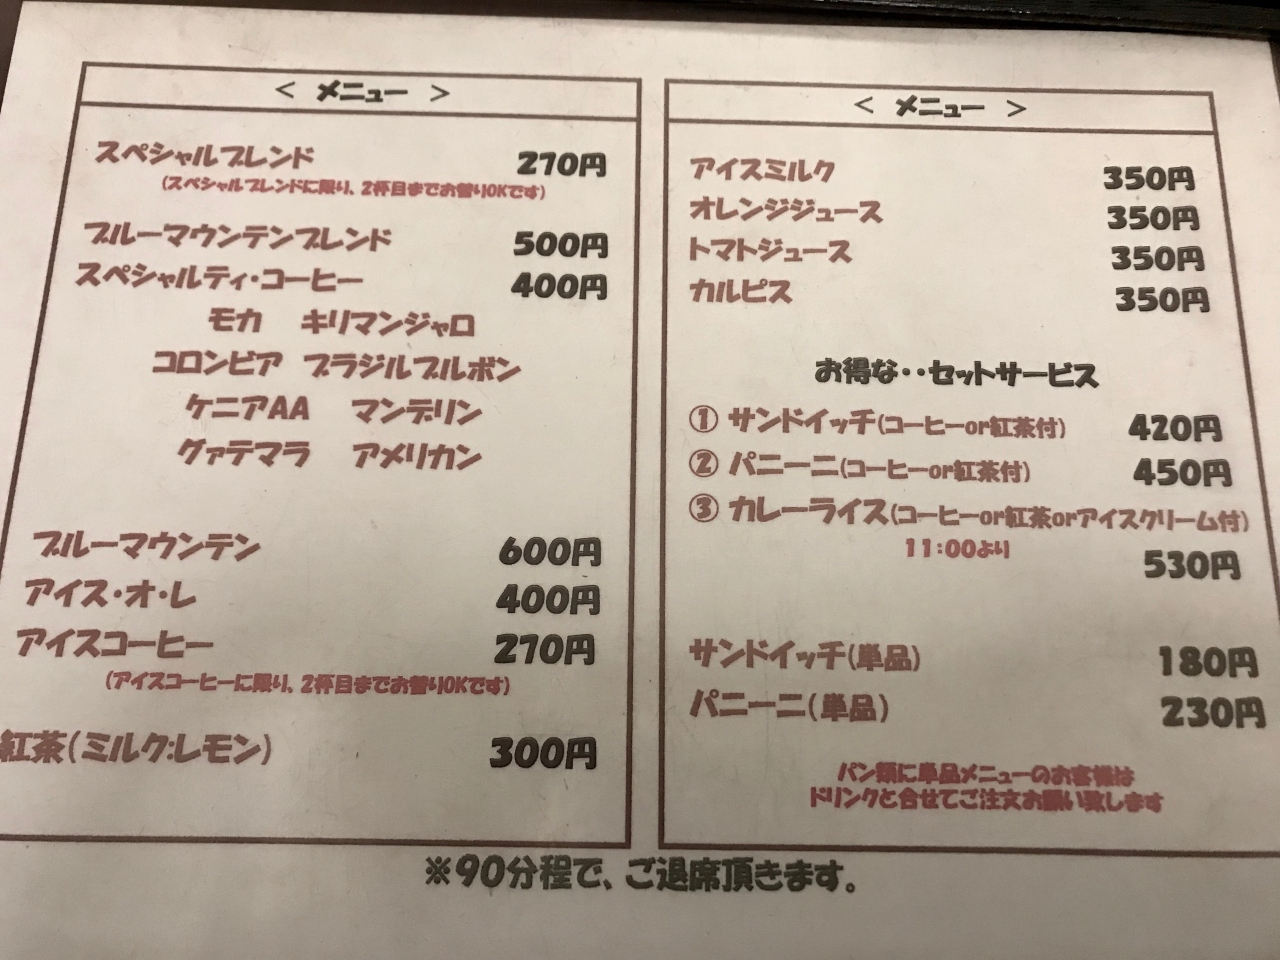 < メニュー >
スペシャルブレンド 270円
(スペシャルブレンドに限り、2杯目までお替りOKです)
ブルーマウンテンブレンド 500円
スペシャルティ・コーヒー 400円
モカ キリマンジャロ
コロンビア ブラジルブルボン
ケニアAA マンデリン
グァテマラ アメリカン
ブルーマウンテン 600円
アイス・オ・レ 400円
アイスコーヒー 270円
(アイスコーヒーに限り、2杯目までお替りOKです)
紅茶(ミルク:レモン) 300円
< メニュー >
アイスミルク 350円
オレンジジュース 350円
トマトジュース 350円
カルピス 350円
お得な・・セットサービス
① サンドイッチ(コーヒーor紅茶付) 420円
② パニーニ(コーヒーor紅茶付) 450円
③ カレーライス(コーヒーor紅茶orアイスクリーム付)
11:00より 530円
サンドイッチ(単品) 180円
パニーニ(単品) 230円
パン類に単品メニューのお客様は
ドリンクと合せてご注文お願い致します
※90分程で、ご退席頂きます。